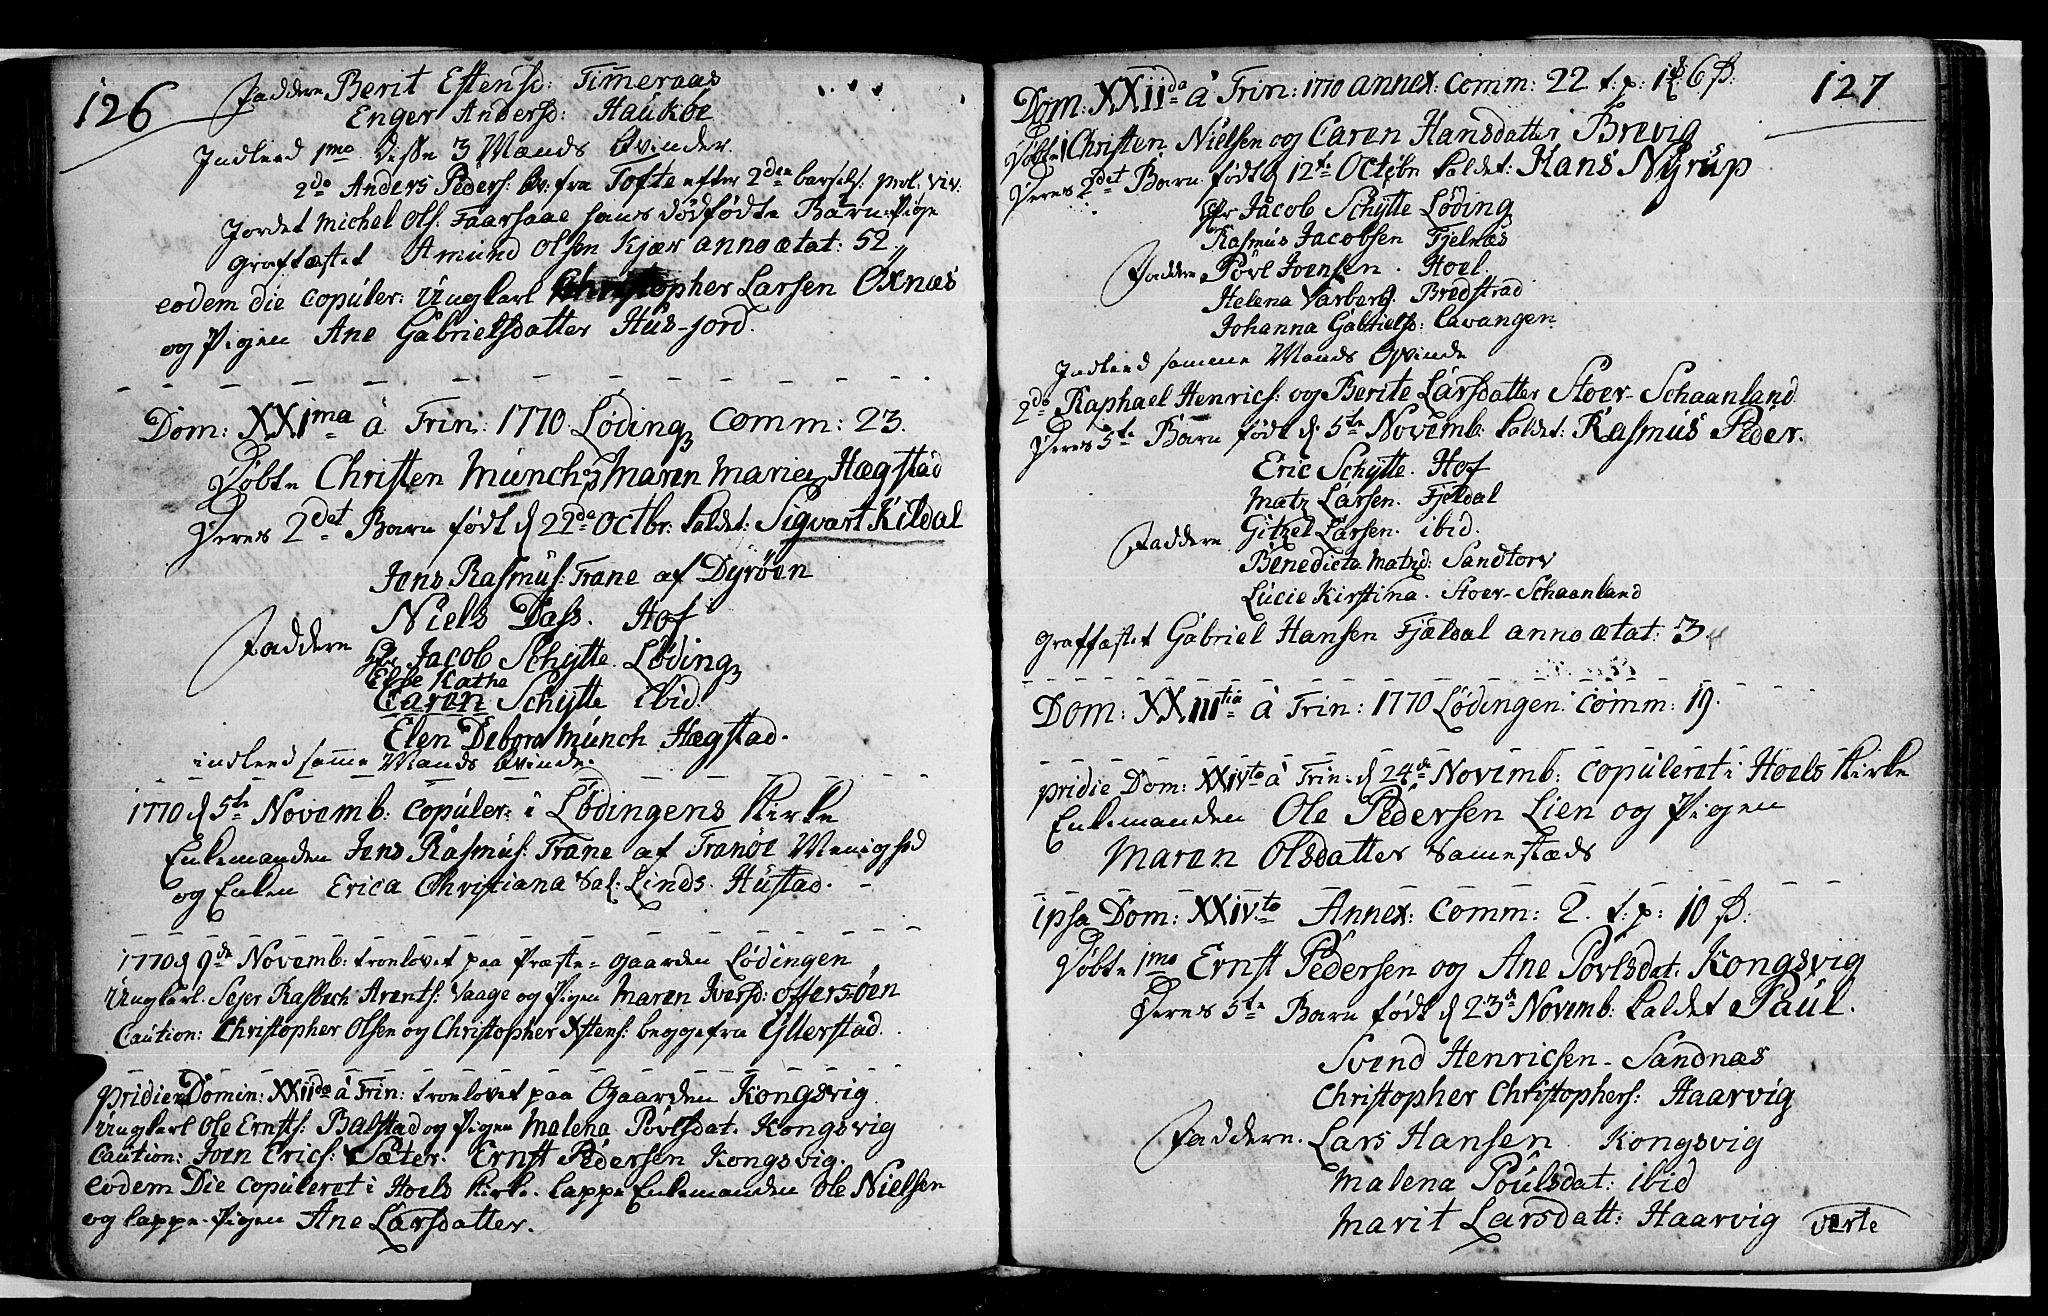 126
Faddere Berit Estensd: Timeraas
Enger Andersd: Haukøe
Indleed 1mo disse 3 Mands Qvinder.
2do Anders Peders: Qv: fra Tofte efter 2den barsels:
Jordet Michel Ols: Faarsaae hans dødfødte Barn Pige
Graffæstet Amund Olsen Kjær anno ætat: 52
eodem die copuler: Ungkarl Christopher Larsen Øxnæs
og Pigen Ane Gabrielsdatter Huus-jord.
Dom: XXIma à Trin: 1770 Løding comm: 23.
Døbte Christen Munch og Maren Marie Hægstad
Deres 2det Barn født d 22de Octbr: kaldet: Sigvart Kildal
Jens Rasmus: Trane af Dyrøen
Niels Dass. Hof
Faddere Hr Jacob Schytte. Løding
Else Kathe
Caren Schytte ibid.
Elen Debora Munch Hægstad.
indleed samme Mands Qvinde.
1770 d 5te Novemb: copuler: i Lødingens Kirke
Enkemanden Jens Rasmus: Trane af Tranøe Menighed
og Enken Erica Christiana Sal: Linds. Hustad.
1770 d 9de Novemb: trolovet paa Præste-gaarden Lødingen
Ungkarl Sejer Rasbech Arents: Vaage og Pigen Maren Iversd: Offersøen
Caution: Christopher Olsen og Christopher begge fra Ytterstad.
pridie Domin: XXIIda à Trin: trolovet paa Gaarden Kongsvig
Ungkarl Ole Ernsts: Balstad og Pigen Malena Povlsdat. Kongsvig
Caution: Joen Erics: Sæter. Ernst Pedersen Kongsvig.
eodem Die copuleret i Hoels Kirke. lappe Enkemanden Ole Nielsen
og lappe-Pigen Ane Larsdatter.
127
Dom: XXIIda à Trin: 1770 annex: comm: 22 t: p: 6 ß:
Døbte Christen Nielsen og Caren Hansdatter Brevig
Deres 2det Barn født d 12te Octobr kaldet: Hans Nyrup
Hr Jacob Schytte Løding
Rasmus Jacobsen Fjelnæs
Faddere Povl Joensen. Hoel.
Helena Varberg. Bredstrad
Johanna Gabrielsd: Cavangen
Indleed samme Mands Qvinde
2do Raphael Henrics: og Berite Larsdatter Stoer-Schaanland
Deres 5te Barn født d 5te Novemb: kaldet: Rasmus Peder.
Eric Schytte. Hof
Matz Larsen. Fjeldal
Faddere Gitzel Larsen. ibid.
Benedicta Matzd: Sandtorv
Lucie Kirstina. Stoer-Schaanland
Graffæstet Gabriel Hansen Fjældal anno ætat: 3
Dom: XXIIItia à Trin: 1770 Lødingen: comm: 19.
pridie Dom: XXIVta à Trin: d 24de Novemb: copuleret i Hoels Kirke
Enkemanden Ole Pedersen Lien og Pigen
Maren Olsdatter samestæds
ipsa Dom: XXIVta Annex: comm: 2. t: p: 10 ß:
Døbte 1mo Ernst Pedersen og Ane Povlsdat: Kongsvig
Deres 5te Barn født d 23de Novemb: kaldet Paul.
Svend Henricsen - Sandnæs
Christopher Christophers: Haarvig
Faddere. Lars Hansen Kongsvig
Malena Poulsdat: ibid
Marit Larsdatt: Haarvig verte